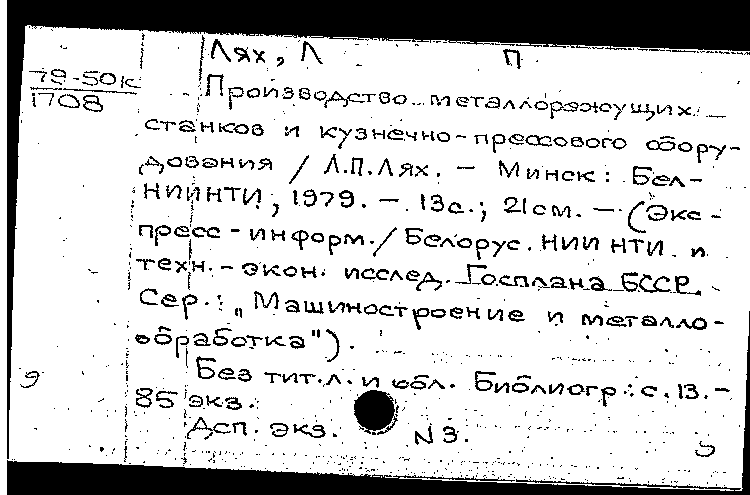 Лях, Л П
79-50к
1708
Производство металлорежущих
станков и кузнечно-прессового обору-
дования / Л.П.Лях. – Минск: Бел-
НИИНТИ, 1979. – 13с.; 21см. – (Экс-
пресс-информ./ Белорус. НИИ НТИ и
техн.-экон. исслед. Госплана БССР.
Сер.: „Машиностроение и металло-
обработка").
Без тит.л. и обл. Библиогр.: с. 13. –
85 экз.
Дсп. экз. N 3.
9